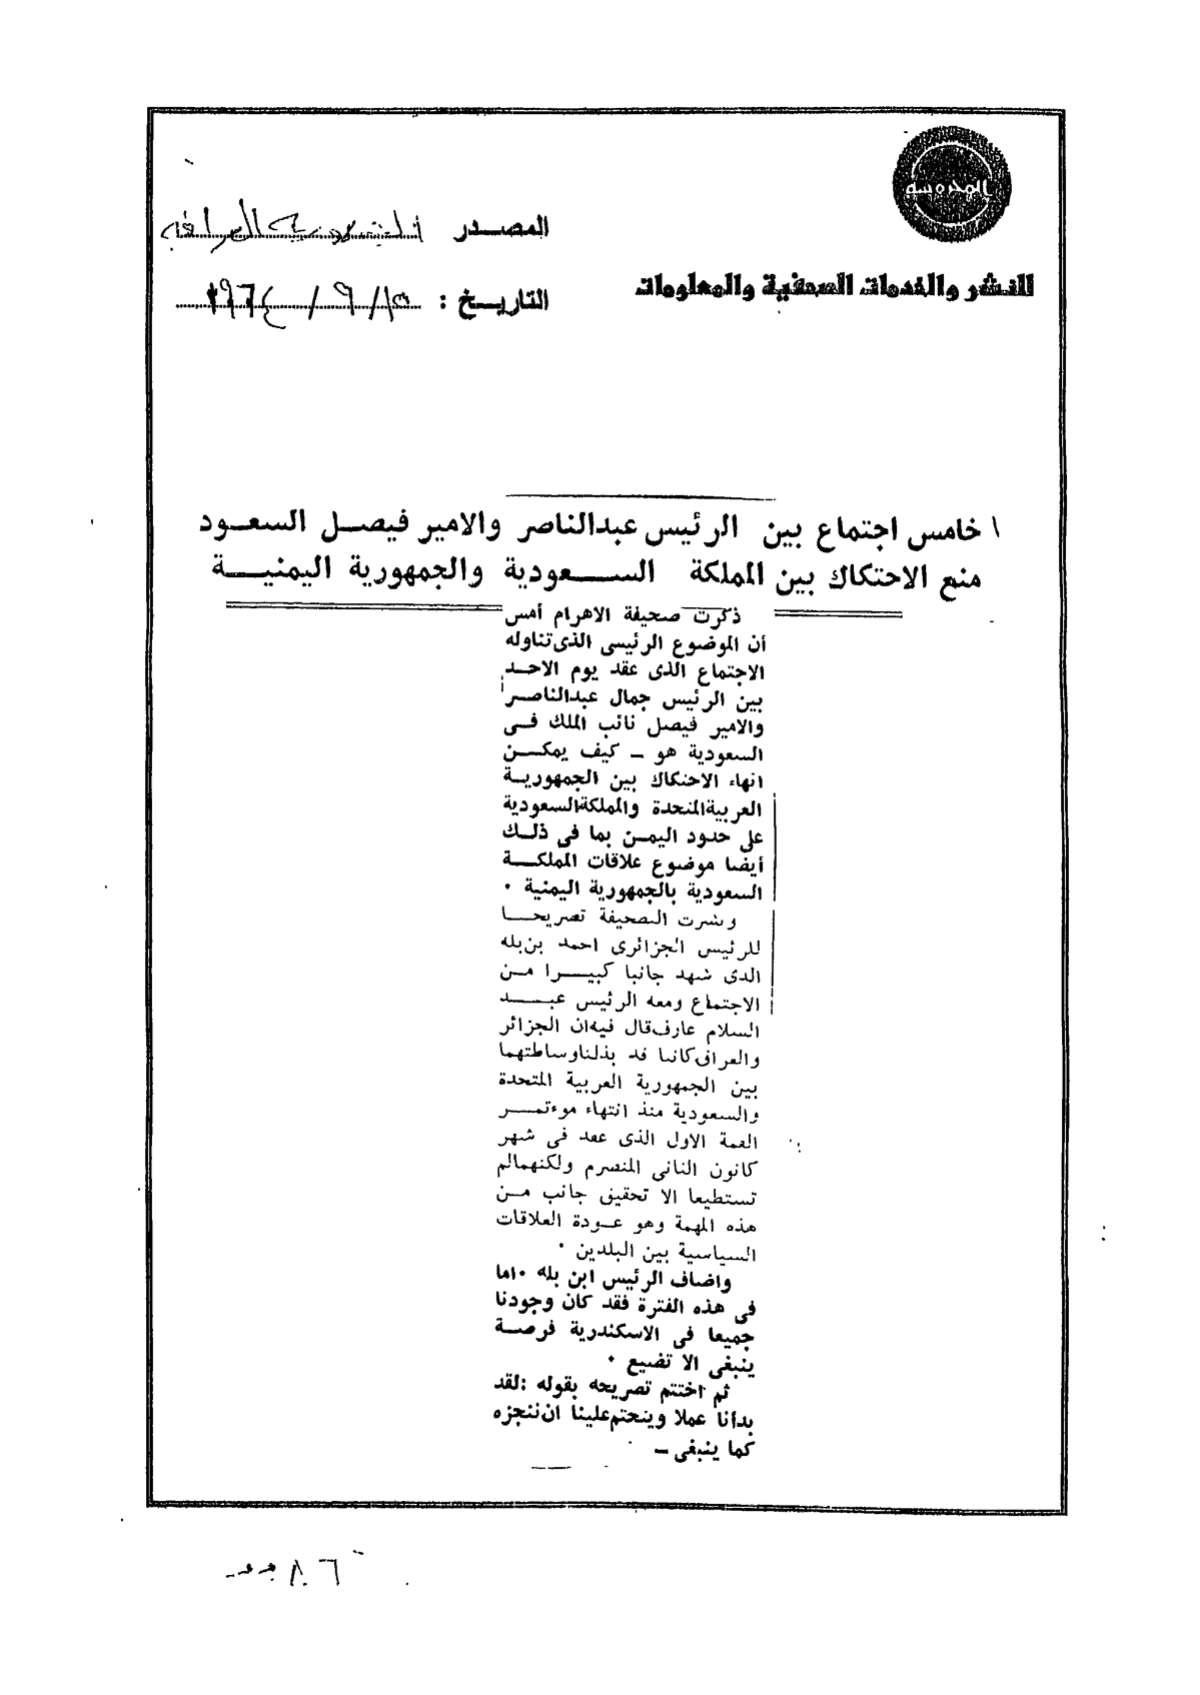 المحروسه
للنشر والخدمات الصحفية والمعلومات
المصــدر الجمهورية العراقية
التاريــخ : ١٥/ ٩ / ١٩٦٤
خامس اجتماع بين الرئيس عبدالناصر والامير فيصــل السعــود
منع الاحتكاك بين المملكة الســـعودية والجمهورية اليمنيـــة
ذكرت صحيفة الاهرام أمس
أن الموضوع الرئيسى الذى تناوله
الاجتماع الذى عقد يوم الاحــد
بين الرئيس جمال عبدالناصــر
والامير فيصل نائب الملك فــى
السعودية هو ــ كيف يمكـــن
انهاء الاحتكاك بين الجمهوريــة
العربية المتحدة والمملكة السعودية
على حدود اليمــن بما فى ذلــك
أيضا موضوع علاقات المملكــة
السعودية بالجمهورية اليمنية ٠
ونشرت الصحيفة تصريحـــا
للرئيس الجزائرى احمد بن بله
الذى شهد جانبا كبيـــرا مــن
الاجتماع ومعه الرئيس عبـــد
السلام عارف قال فيه ان الجزائر
والعراق كانتا قد بذلتا وساطتهما
بين الجمهورية العربية المتحدة
والسعودية منذ انتهاء موءتمـــر
القمة الاول الذى عقد فى شهر
كانون الثانى المنصرم ولكنهما لم
تستطيعا الا تحقيق جانب مــن
هذه المهمة وهو عــودة العلاقات
السياسية بين البلدين ٠
واضاف الرئيس ابن بله ٠ اما
فى هذه الفترة فقد كان وجودنا
جميعا فى الاسكندرية فرصــة
ينبغى الا تضيع ٠
ثم اختتم تصريحه بقوله : لقد
بدأنا عملا ويتحتم علينا ان ننجزه
كما ينبغى ــ